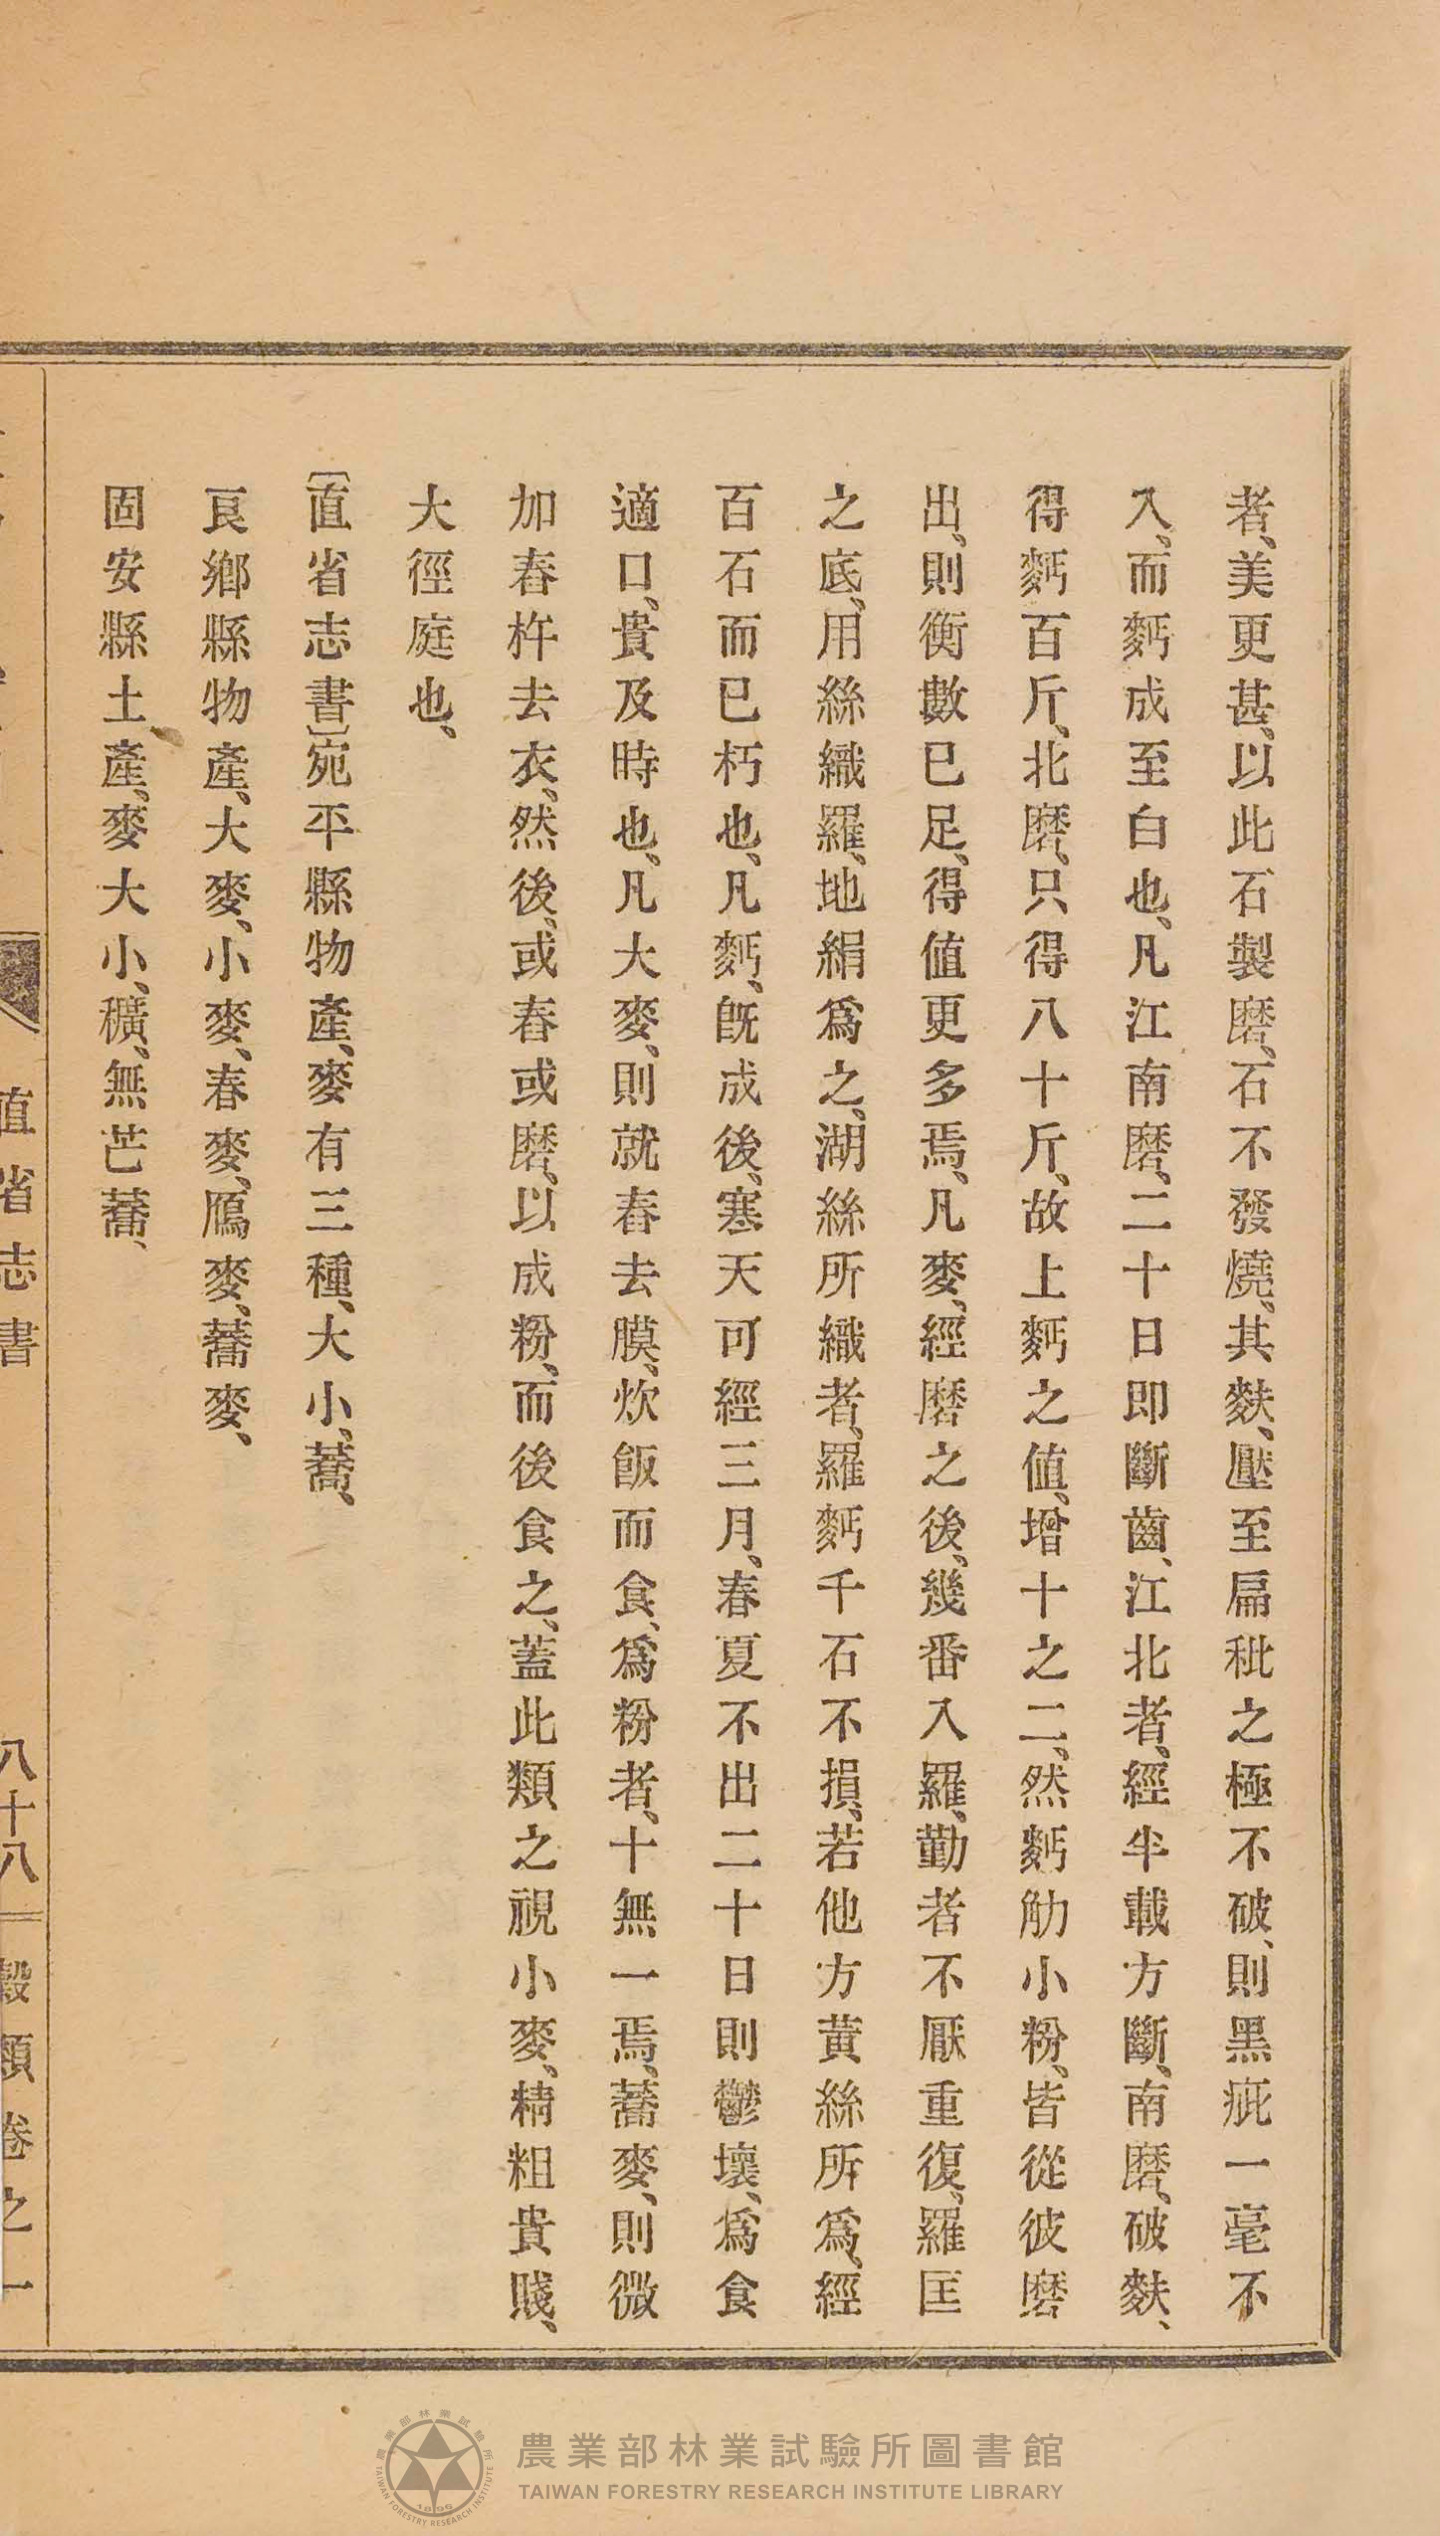 者、美更甚、以此石製磨、石不發燒、其麩、壓至扁秕之極不破、則黑疵一毫不
入、而麪成至白也、凡江南磨、二十日即斷齒、江北者、經半載方斷、南磨、破麩、
得麪百斤、北磨、只得八十斤、故上麪之值、增十之二、然麪觔小粉、皆從彼磨
出、則衡數已足、得值更多焉、凡麥、經磨之後、幾番入羅、勤者不厭重復、羅匡
之底、用絲織羅、地絹爲之、湖絲所織者、羅麪千石不損、若他方黃絲所爲、經
百石而已朽也、凡麪、旣成後、寒天可經三月、春夏不出二十日則鬱壞、爲食
適口、貴及時也、凡大麥、則就舂去膜、炊飯而食、爲粉者、十無一焉、蕎麥、則微
加舂杵去衣、然後、或舂或磨、以成粉、而後食之、蓋此類之視小麥、精粗貴賤、
大徑庭也、
〔直省志書〕宛平縣物產、麥有三種、大小、蕎、
良鄉縣物產、大麥、小麥、春麥、鴈麥、蕎麥、
固安縣土產、麥大小、穬、無芒蕎、
直省志書
八十八
穀類卷之一
農業部林業試驗所圖書館
TAIWAN FORESTRY RESEARCH INSTITUTE LIBRARY
農業部林業試驗所
TAIWAN FORESTRY RESEARCH INSTITUTE
1896